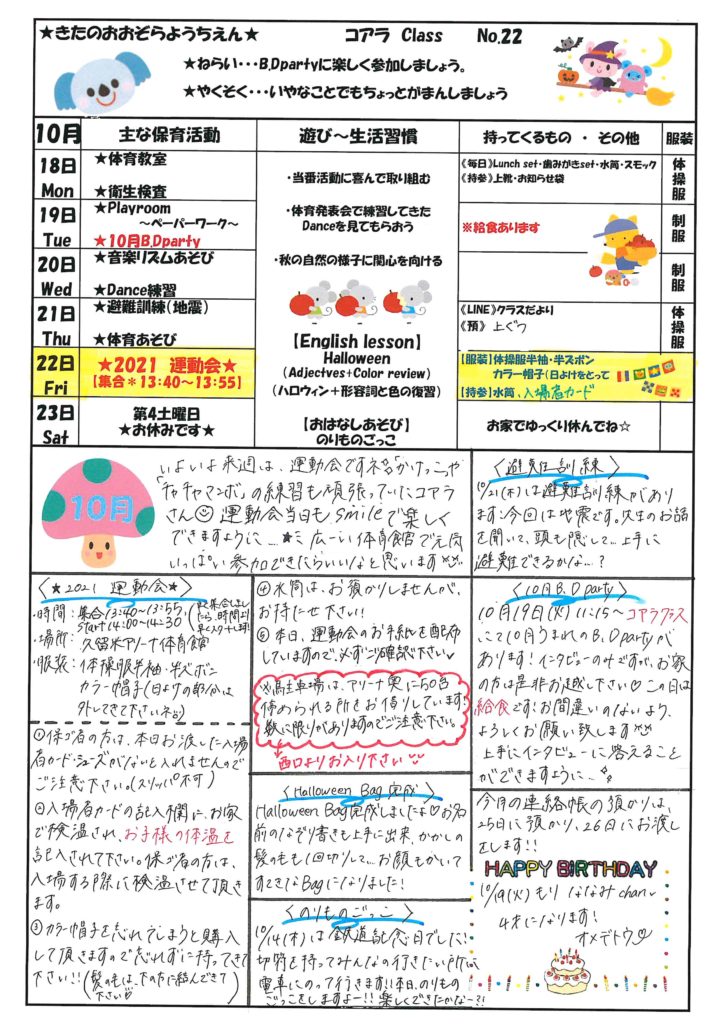 ★きたのおおぞらようちえん★ コアラ Class No.22
★ねらい・・・B.Dpartyに楽しく参加しましょう。
★やくそく・・・いやなことでもちょっとがまんしましょう
10月 主な保育活動 遊び～生活習慣 持ってくるもの ・ その他 服装
18日 Mon
★体育教室
★衛生検査
《毎日》Lunch set・歯みがきset・水筒・スモック
《持参》上靴・お知らせ袋
体操服
19日 Tue
★Playroom
～ペーパーワーク～
★10月B.Dparty
※給食あります
制服
20日 Wed
★音楽リズムあそび
★Dance練習
制服
21日 Thu
★避難訓練(地震)
★体育あそび
《LINE》クラスだより
《預》上ぐつ
体操服
22日 Fri
★2021 運動会★
【集合＊13:40～13:55】
【服装】体操服半袖・半ズボン
カラー帽子(日よけをとって
【持参】水筒、入場者カード
23日 Sat
第4土曜日
★お休みです★
お家でゆっくり休んでね☆
・当番活動に喜んで取り組む
・体育発表会で練習してきた
Danceを見てもらおう
・秋の自然の様子に関心を向ける
【English lesson】
Halloween
(Adjectves+Color review)
(ハロウィン+形容詞と色の復習)
【おはなしあそび】
のりものごっこ
10月
いよいよ来週は、運動会ですネ!!「かけっこ」や
「チャチャマンボ」の練習も頑張っていたコアラ
さん 運動会当日もsmileで楽しく
できますように…★ミ 広ーい体育館で元気
いっぱい参加できたらいいなと思います
〈避難訓練〉
10/21(木)は避難訓練があり
ます!今回は地震です。先生のお話
を聞いて、頭も隠して…上手に
避難できるかな…?
〈★2021 運動会★〉
・時間:集合13:40～13:55
Start14:00～14:30
・場所:久留米アリーナ体育館
・服装:体操服半袖・半ズボン
カラー帽子(日よけの部分は
外してきて下さいネ)
①保ゴ者の方は、本日お渡しした入場
者カード・シューズがないと入れませんので
ご注意下さい。(スリッパ不可)
②入場者カードの記入欄に、お家
で検温され、お子様の体温を
記入されて下さい。保ゴ者の方は、
入場する際に検温させて頂き
ます。
③カラー帽子を忘れてしまうと購入
して頂きますので忘れずに持ってきて
下さい!!(髪のもは、下の方に結んできて
下さい♡)
④水筒は、お預かりしませんが、
お持たせ下さい!
⑤本日、運動会のお手紙を配布
していますので、必ずご確認下さい
※駐車場は、アリーナ奥に50台
停められる所をお借りしています!
数に限りがありますのでご注意下さい。
西口よりお入り下さい
〈Halloween Bag完成〉
Halloween Bag完成しましたよ♡お名
前のなぞり書きも上手に出来、かかしの
髪のもも1回切りして…お顔もかいて
すてきなBagになりました!
〈のりものごっこ〉
10/14(木)は鉄道記念日でした!
切符を持ってみんなの行きたい所へ
電車にのって行きます!!本日、のりもの
ごっこをしますよー!!楽しくできたかなー?!
〈10月B.D party〉
10月19日(火)11:15～コアラクラス
にて10月うまれのB.D partyが
あります!インタビューのみですが、お家
の方は是非お越し下さい♡この日は
給食です!お間違いのないよう、
よろしくお願い致します
上手にインタビューに答えること
ができますように…
今月の連絡帳の預かりは、
25日に預かり、26日にお渡し
をします!!
HAPPY BIRTHDAY
10/19(火)もり ななみchan
4才になります!
オメデトウ♡